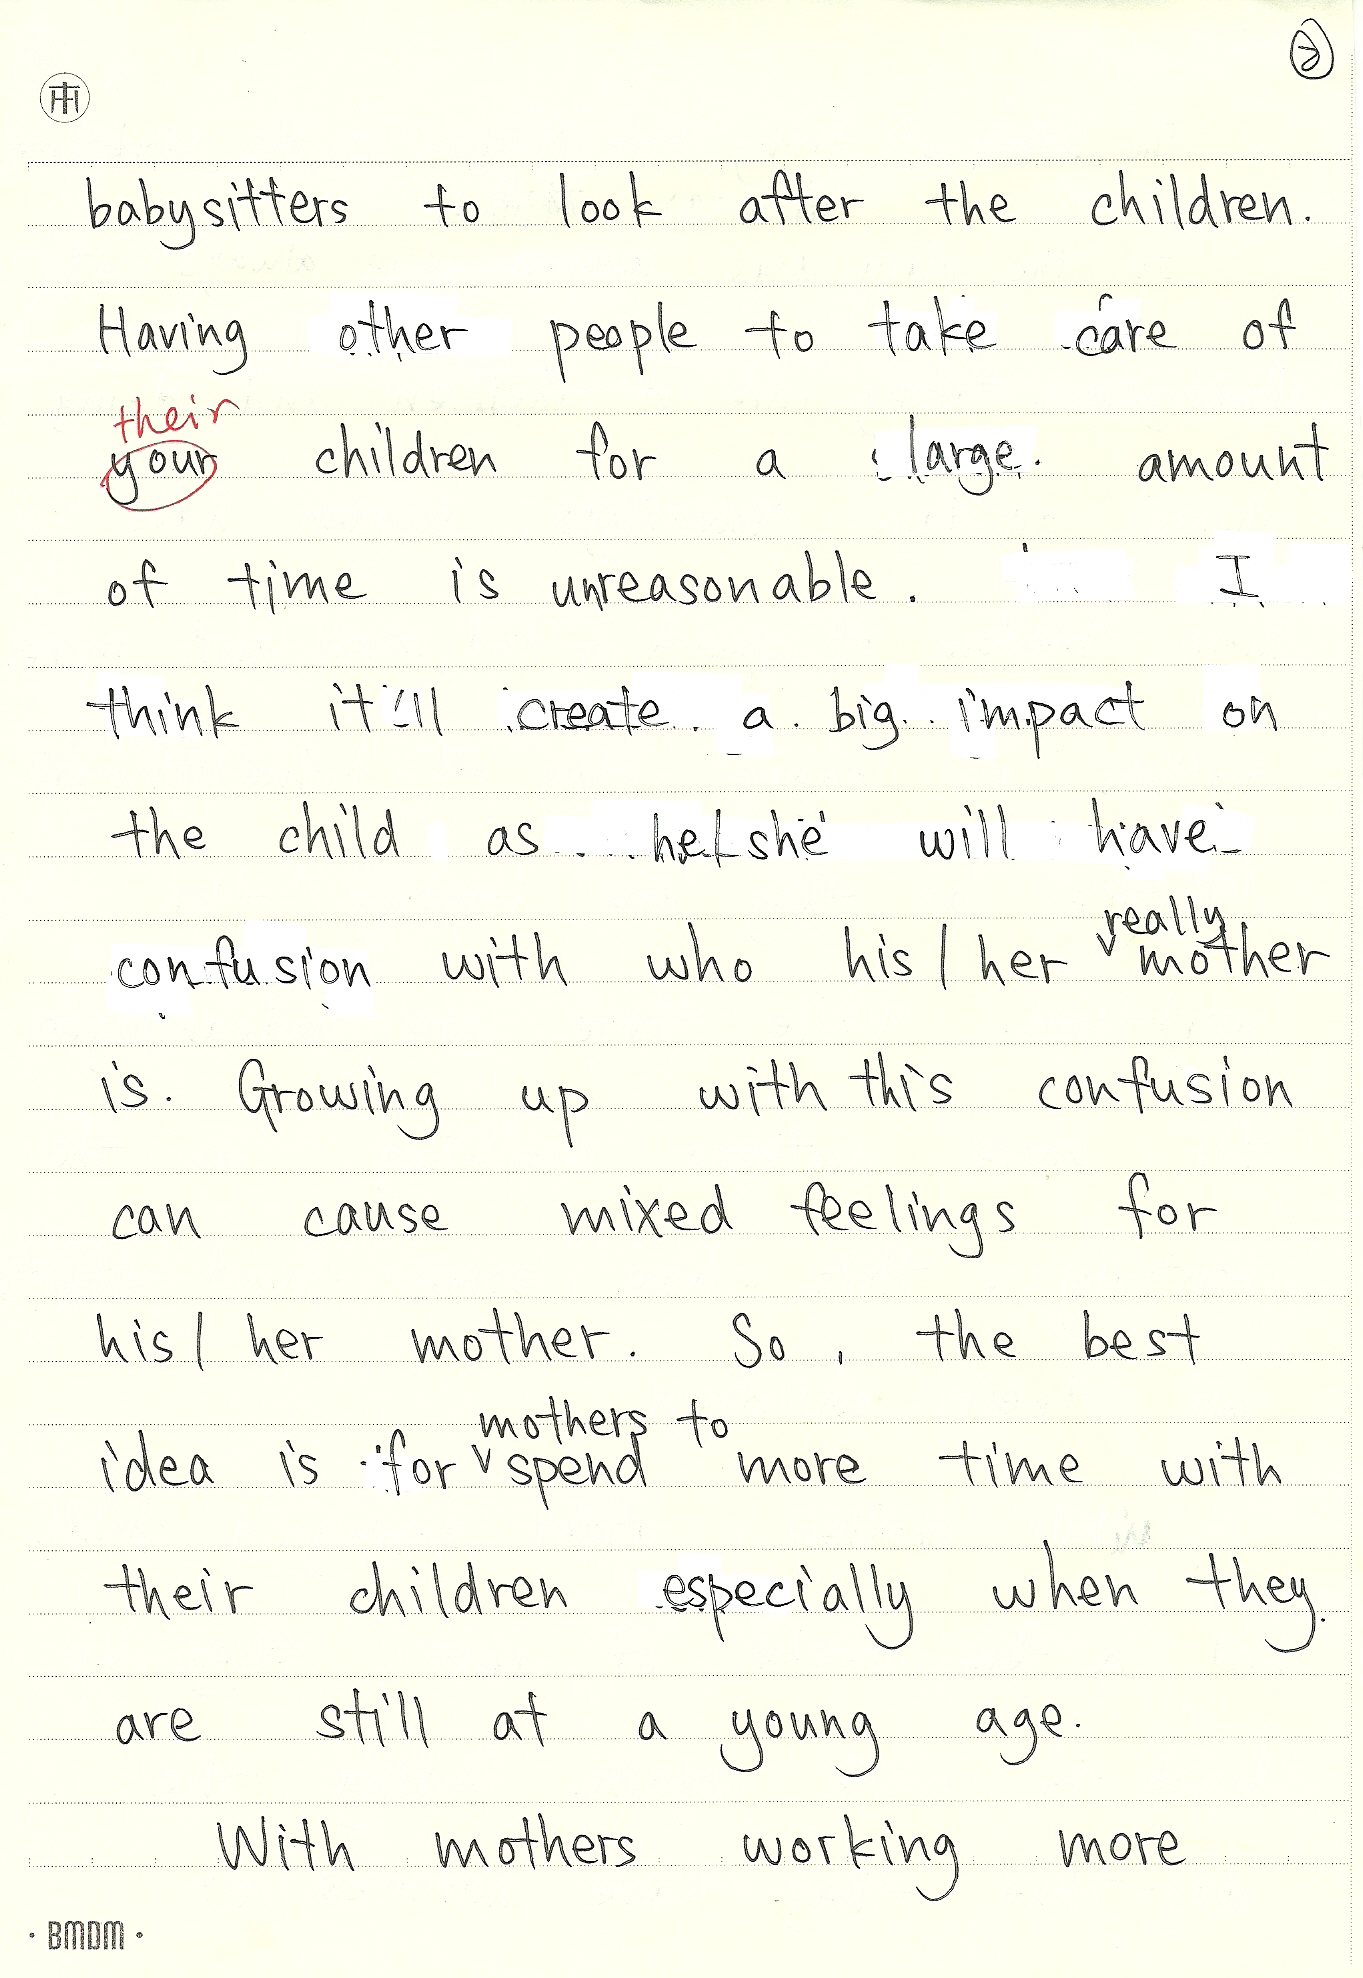 ②
babysitters to look after the children.
Having other people to take care of
their
your children for a large amount
of time is unreasonable. I
think it'll create a big impact on
the child as he/she will have
really
confusion with who his/her mother
is. Growing up with this confusion
can cause mixed feelings for
his/her mother. So, the best
mothers to
idea is for spend more time with
their children especially when they
are still at a young age.
With mothers working more
· BMDM ·